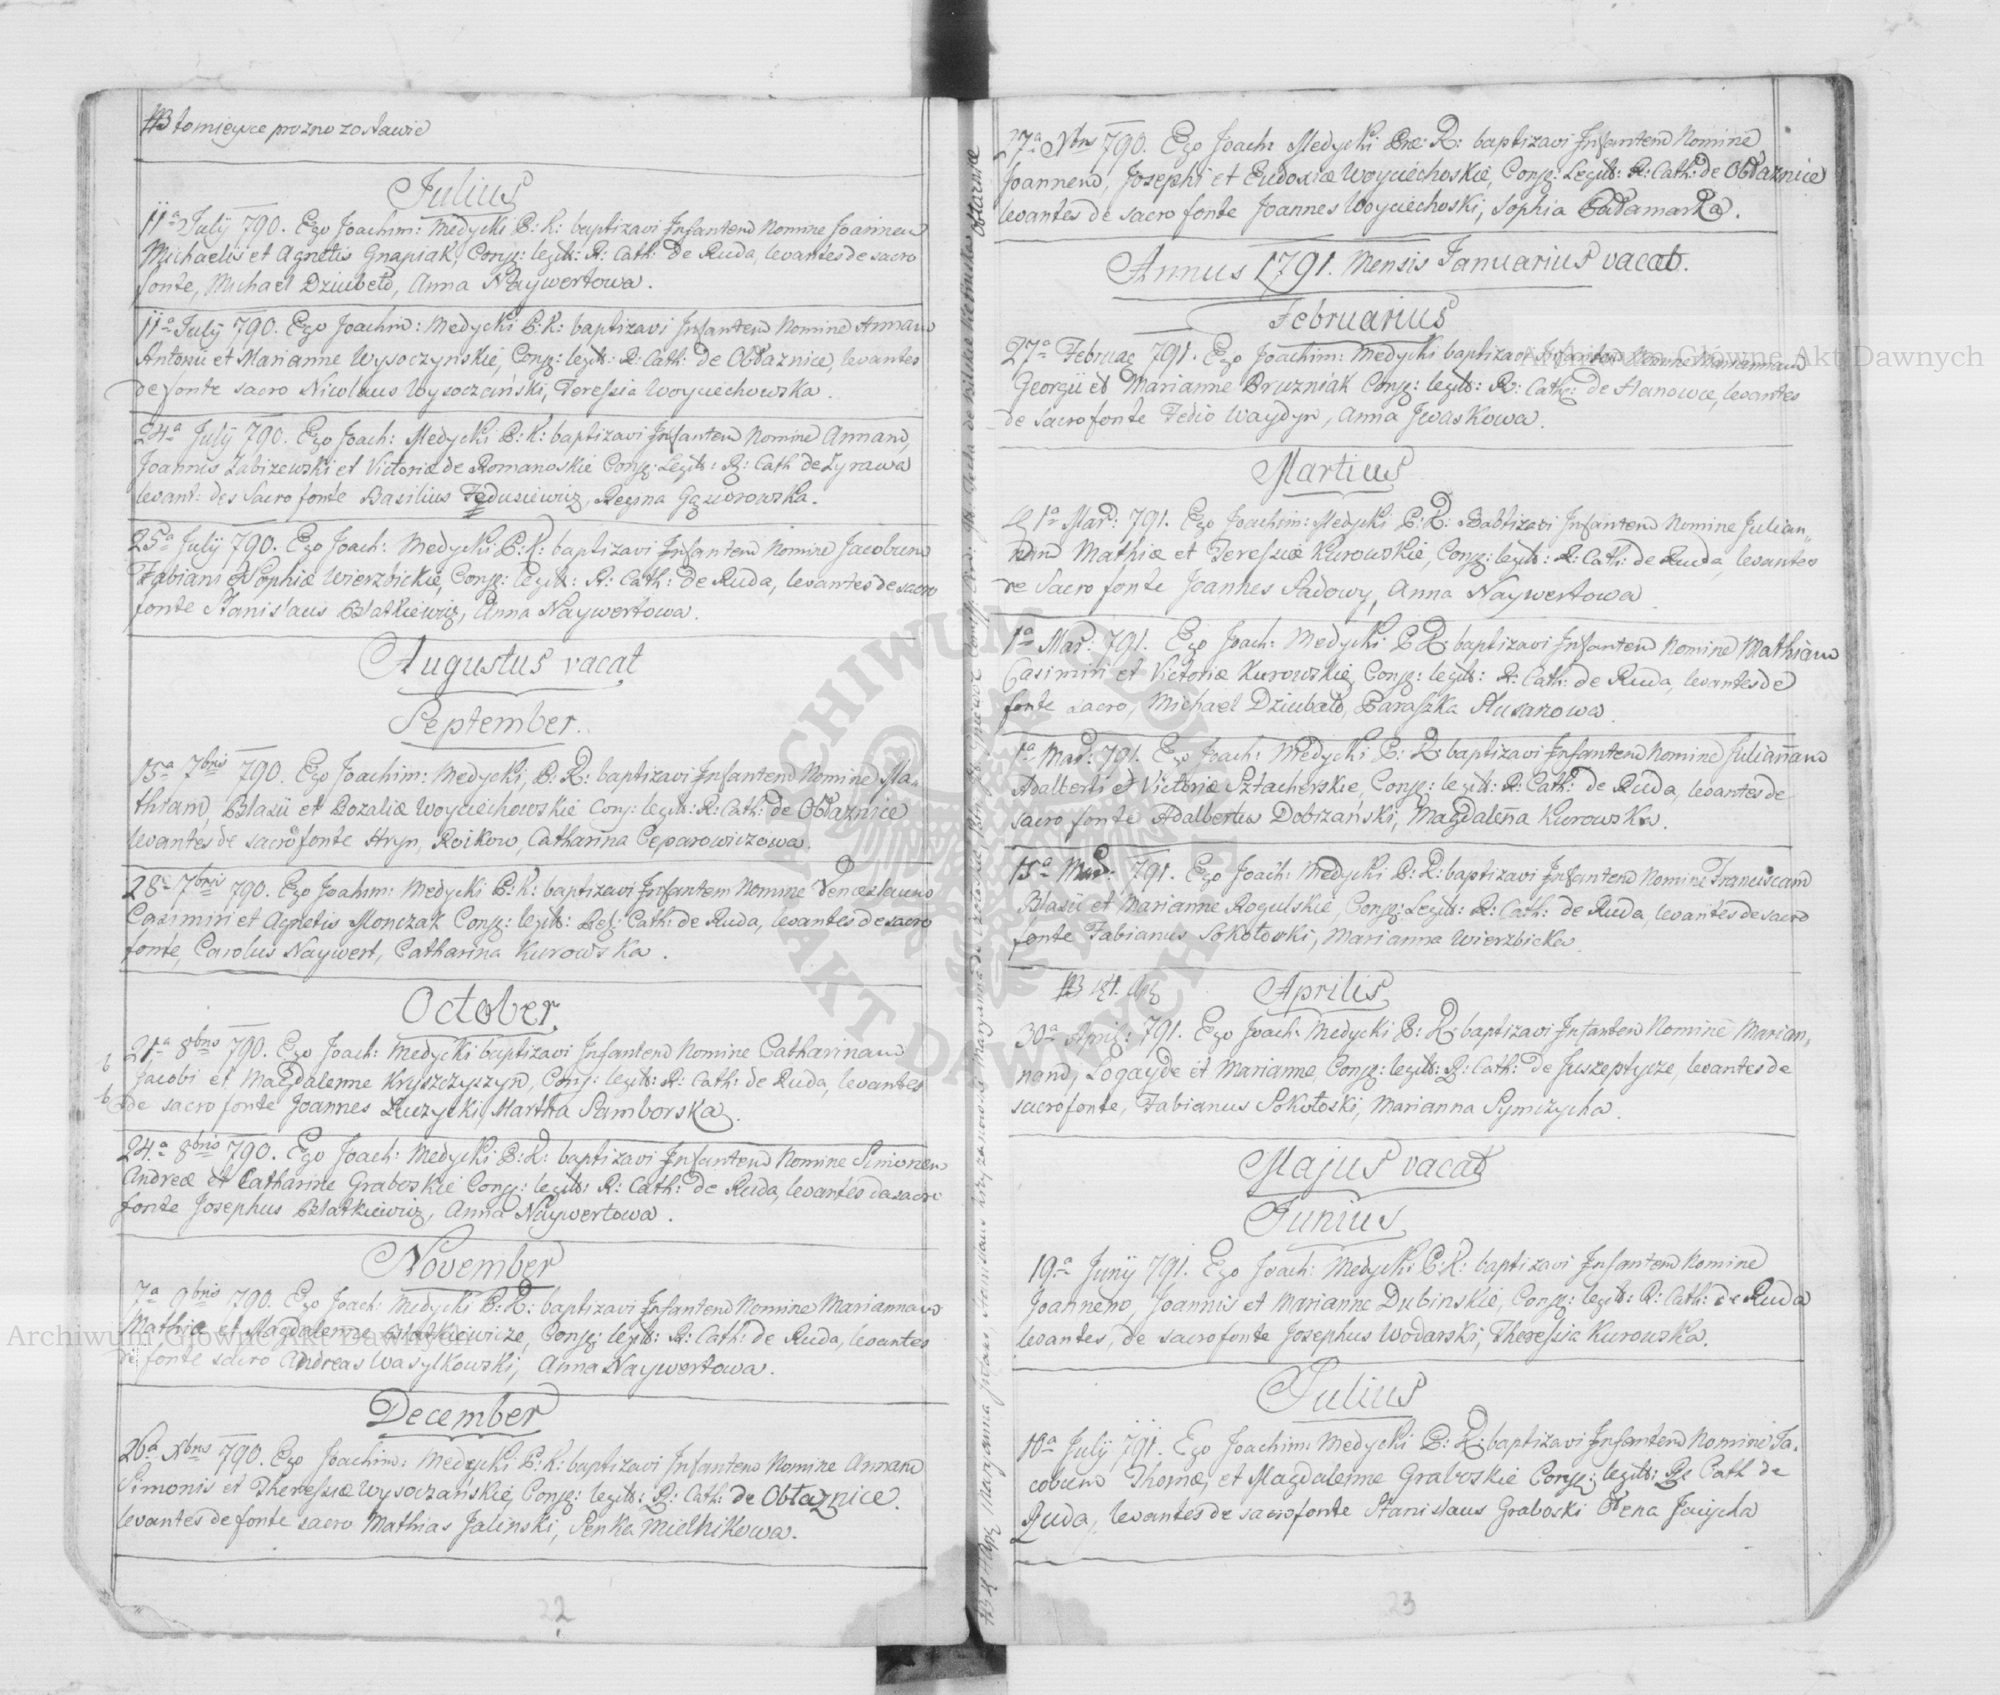 NB to mieysce prozno zostawie
Julius
11ª July 790. Ego Joachim: Medycki P: R: baptizavi Infantem Nomine Joannem
Michaelis et Agnetis Gnapiak, Conjg: legit: R: Cath: de Ruda, levantes de sacro
fonte, Michael Dziubeło, Anna Naywertowa.
11ª July 790. Ego Joachim: Medycki P: R: baptizavi Infantem Nomine Annam
Antonii et Marianne Wysoczynskie, Conjg: legit: R: Cath: de Obłaznice, levantes
de fonte sacro Nicolaus Wysoczański, Teressia Woyciechowska.
24ª July 790. Ego Joach: Medycki P: R: baptizavi Infantem Nomine Annam,
Joannis Zabizewski et Victoriæ de Romanoskie Conjg: Legit: R: Cath de Zyrawa
levant: des Sacro fonte Basilius Fedusiewicz, Regina Gąziorowska.
25ª July 790. Ego Joach: Medycki P: R: baptizavi Infantem Nomine Jacobum
Fabiani et Sophiæ Wierzbickie, Conjg: legit: R: Cath: de Ruda, levantes de sacro
fonte Stanislaus Białkiewicz, Anna Naywertowa.
Augustus vacat
September.
15ª 7bris 790. Ego Joachim: Medycki, P: R: baptizavi Infantem Nomine Ma-
thiam, Blasii et Rozaliæ Woyciechowskie Conj: legit: R: Cath: de Obłaznice
levantes de sacro fonte Hryn, Roikow, Catharina Ceparowiczowa.
28ª 7bris 790. Ego Joahim: Medycki P: R: baptizavi Infantem Nomine Venceslaum
Casimiri et Agnetis Monczak Conjg: legit: R: Cath: de Ruda, levantes de sacro
fonte, Carolus Naywert, Catharina Kurowska.
October
21ª 8bris 790. Ego Joach: Medycki baptizavi Infantem Nomine Catharinam
Jacobi et Magdalenne Kryszczyszyn, Conj: legit: R: Cath: de Ruda, levantes
de sacro fonte Joannes Łuzycki, Martha Samborska.
24ª 8bris 790. Ego Joach: Medycki P: R: baptizavi Infantem Nomine Simonem
Andreæ et Catharine Graboskie Conjg: legit: R: Cath: de Ruda, levantes da sacro
fonte Josephus Białkiewicz, Anna Naywertowa.
November
7ª 9bris 790. Ego Joach: Medycki P: R: baptizavi Infantem Nomine Mariannam
Mathiæ et Magdalenne Białkiewicze, Conjg: legit: R: Cath: de Ruda, levantes
de fonte sacro Andreas Wasylkowski, Anna Naywertowa.
December
26ª Xbris 790. Ego Joachim: Medycki P: R: baptizavi Infantem Nomine Annam
Simonis et Theressiæ Wysoczańskie, Conjg: legit: R: Cath: de Obłaznice.
levantes de fonte sacro Mathias Jalinski, Senka Mielnikowa.
22
27ª Xbris 790. Ego Joach: Medycki R: baptizavi Infantem Nomine
Joannem, Josephi et Eudoxiæ Woyciechoskie, Conjg: Legit: R: Cath: de Obłaznice
levantes de sacro fonte Joannes Woyciechoski, Sophia Sadamarka.
Annus 1791. Mensis Januarius vacat.
Februarius
27ª Februar 791. Ego Joachim: Medycki baptizavi Infantem Nomine Mariannam
Georgii et Marianne Druzniak Conjg: legit: R: Cath: de Hanowce, levantes
de Sacro fonte Fedio Waydyn, Anna Jwaskowa.
Martius
1ª Mar: 791. Ego Joachim: Medycki P: R: Babtizavi Infantem Nomine Julian-
nam Mathiæ et Teressiæ Kurowskie, Conjg: legit: R: Cath: de Ruda, levantes
de Sacro fonte Joannes Sadowy, Anna Naywertowa
1ª Mar: 791. Ego Joach: Medycki P R: baptizavi Infantem Nomine Mathiam
Casimiri et Victoriæ Kurowskie, Conjg: legit: R: Cath: de Ruda, levantes de
fonte sacro, Michael Dziubało, Paraszka Husarowa
1ª Mar: 791. Ego Joach: Medycki P: R: baptizavi Infantem Nomine Juliannam
Adalberti et Victoriæ Sztacherskie, Conjg: legit: R: Cath: de Ruda, levantes de
sacro fonte Adalbertus Dobrzański, Magdalenna Kurowska.
15ª Mar: 791. Ego Joach: Medycki P: R: baptizavi Infantem Nomine Franciscam
Blasii et Marianne Rogulskie, Conjg: Legit: R: Cath: de Ruda, levantes de sacro
fonte Fabianus Sokołoski, Marianna Wierzbicka.
Aprilis
30ª April: 791. Ego Joach: Medycki P: R: baptizavi Infantem Nomine Marian-
nam, Logayde et Marianne, Conjg: legit: R: Cath: de Juszeptycze, levantes de
sacro fonte, Fabianus Sokołoski, Marianna Symczycha.
Majus vacat
Junius
19ª Juny 791. Ego Joach: Medycki P: R: baptizavi Infantem Nomine
Joannem, Joannis et Marianne Dubinskie, Conjg: legit: R: Cath: de Ruda
levantes, de sacro fonte Josephus Wodarski, Theressia Kurowska.
Julius
10ª July 791. Ego Joachim: Medycki P: R: baptizavi Infantem Nomine Ja-
cobum Thomæ, et Magdalenne Graboskie Conjg: legit: R: Cath de
Ruda, levantes de sacro fonte Stanislaus Graboski Fena Jacycha
23
Archiwum Główne Akt Dawnych
Archiwum Główne Akt Dawnych
ARCHIWUM GŁÓWNE AKT DAWNYCH